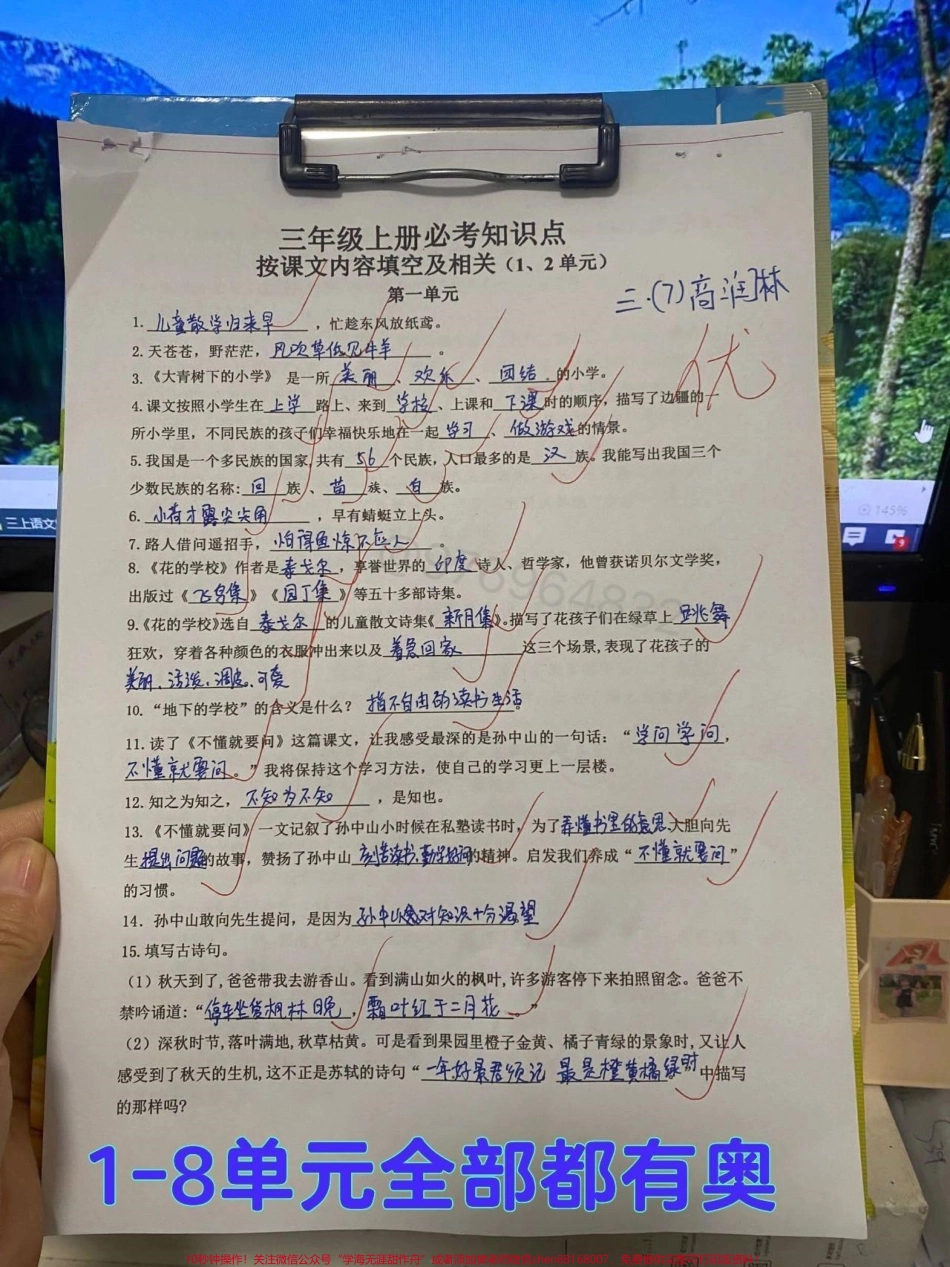 三年级上册必考知识点
按课文内容填空及相关（1、2单元）
第一单元
三·(7)高润林
优
1. 儿童散学归来早，忙趁东风放纸鸢。
2. 天苍苍，野茫茫，风吹草低见牛羊。
3.《大青树下的小学》 是一所美丽、欢乐、团结的小学。
4. 课文按照小学生在上学路上、来到学校、上课和下课时的顺序，描写了边疆的一
所小学里，不同民族的孩子们幸福快乐地在一起学习、做游戏的情景。
5. 我国是一个多民族的国家，共有56个民族，人口最多的是汉族。我能写出我国三个
少数民族的名称：回族、苗族、白族。
6. 小荷才露尖尖角，早有蜻蜓立上头。
7. 路人借问遥招手，怕得鱼惊不应人。
8. 《花的学校》作者是泰戈尔，享誉世界的印度诗人、哲学家，他曾获诺贝尔文学奖，
出版过《飞鸟集》《园丁集》等五十多部诗集。
9.《花的学校》选自泰戈尔的儿童散文诗集《新月集》。描写了花孩子们在绿草上跳舞
狂欢，穿着各种颜色的衣服冲出来以及着急回家这三个场景，表现了花孩子的
美丽、活泼、调皮、可爱
10. “地下的学校”的含义是什么？ 指不自由的读书生活。
11. 读了《不懂就要问》这篇课文，让我感受最深的是孙中山的一句话：“学问学问，
不懂就要问。”我将保持这个学习方法，使自己的学习更上一层楼。
12. 知之为知之，不知为不知，是知也。
13. 《不懂就要问》一文记叙了孙中山小时候在私塾读书时，为了弄懂书里的意思，大胆向先
生提出问题的故事，赞扬了孙中山刻苦读书，勤学好问的精神。启发我们养成“不懂就要问”
的习惯。
14. 孙中山敢向先生提问，是因为孙中山对知识十分渴望
15. 填写古诗句。
（1）秋天到了，爸爸带我去游香山。看到满山如火的枫叶，许多游客停下来拍照留念。爸爸不
禁吟诵道：“停车坐爱枫林晚，霜叶红于二月花。”
（2）深秋时节，落叶满地，秋草枯黄。可是看到果园里橙子金黄、橘子青绿的景象时，又让人
感受到了秋天的生机，这不正是苏轼的诗句“一年好景君须记 最是橙黄橘绿时中描写
的那样吗？
145%
三上语文
1-8单元全部都有奥